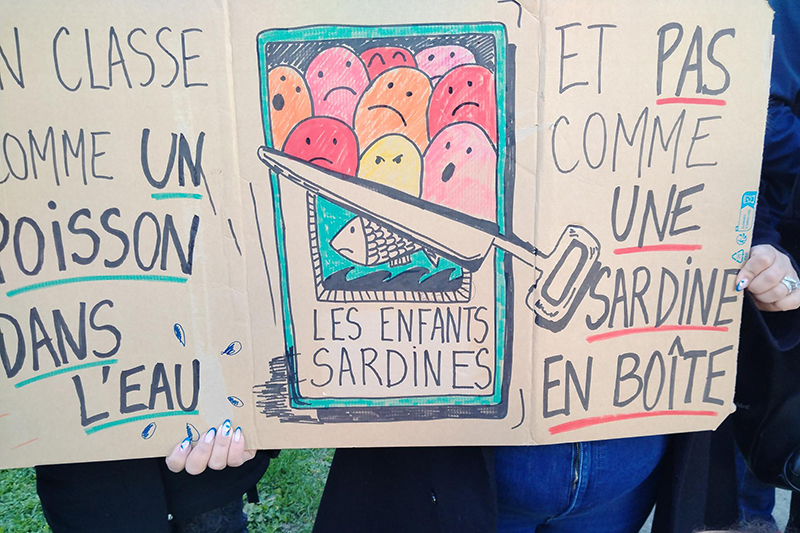 CLASSE
COMME UN
POISSON
DANS
L'EAU
LES ENFANTS
SARDINES
ET PAS
COMME
UNE
SARDINE
EN BOÎTE